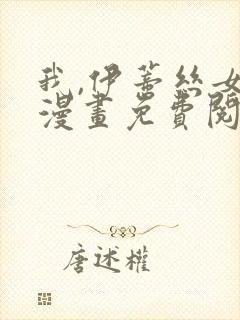 我,伊蒂丝女
漫畫免費閱
唐述權